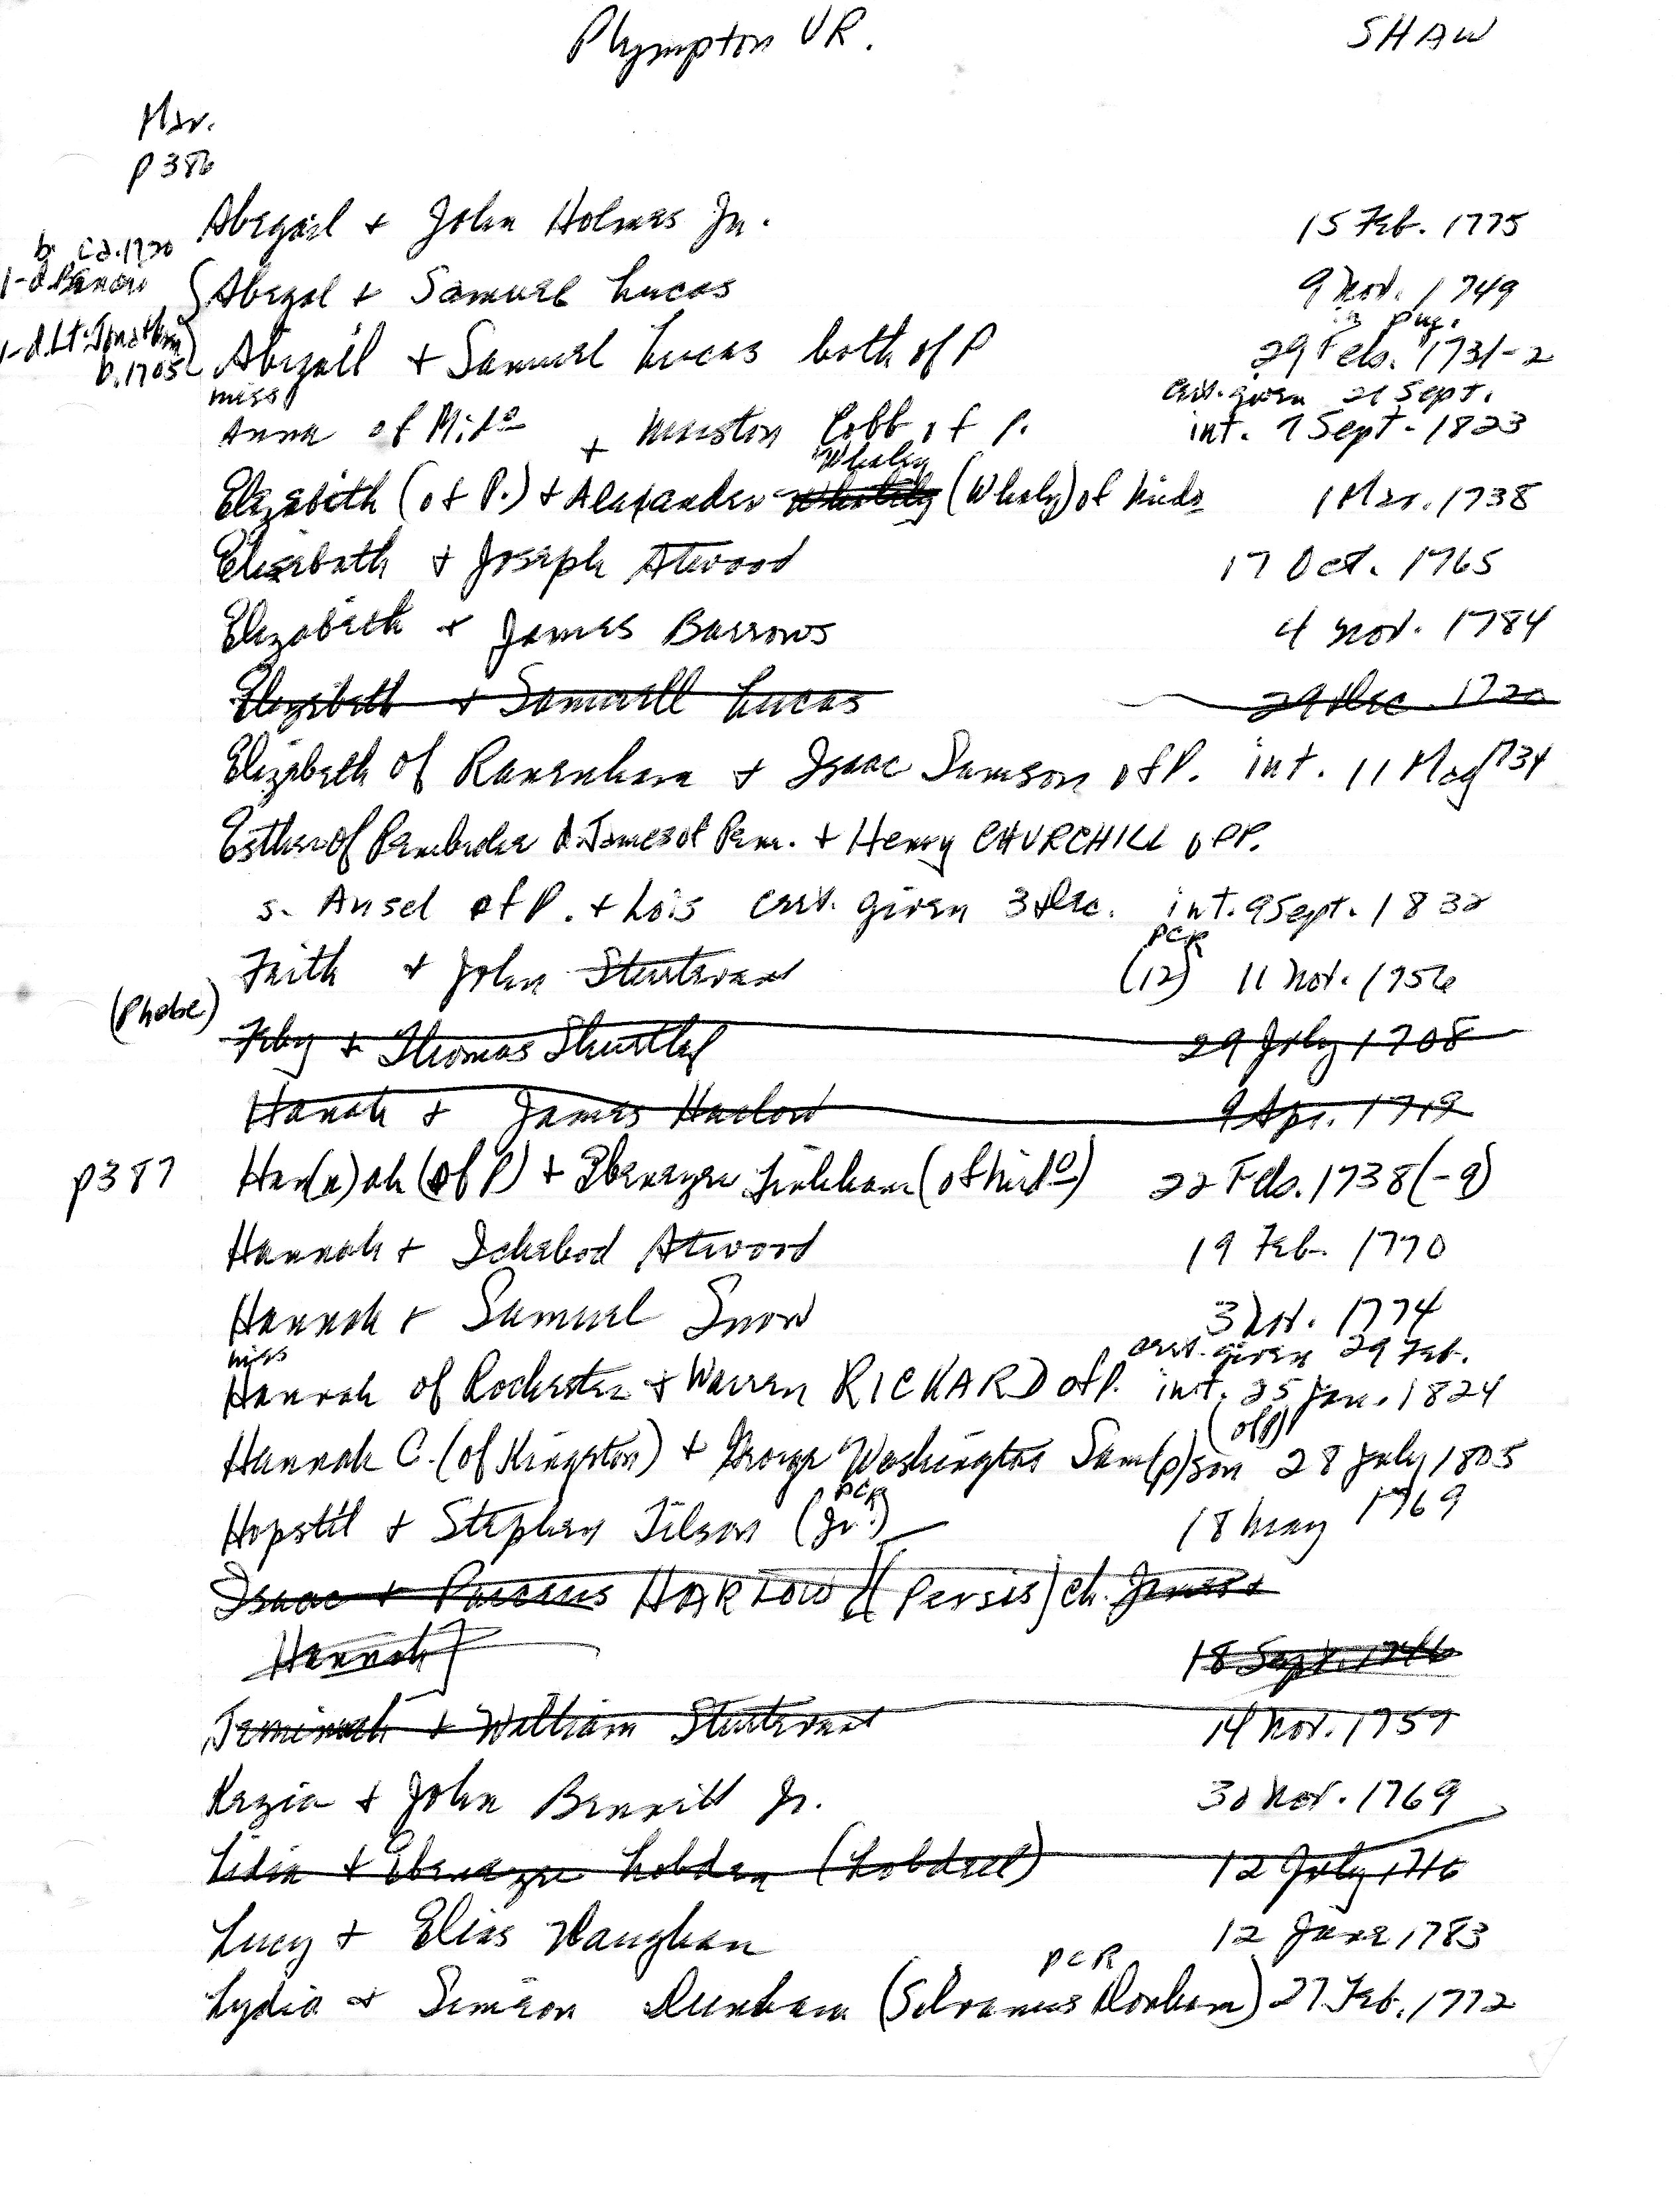 Plympton VR. SHAW
Mar.
p 386
Abigail + John Holmes Jr. 15 Feb. 1775
b. ca. 1730
1-d. Benoni
Abigal + Samuel Lucas 9 Nov. 1749
1-d. Lt. Jonathan
b. 1705
in
Abigail + Samuel Lucas both of P 29 Feb. 1731-2
miss cert. given 21 Sept.
Anna of Mido + Marston Cobb of P. int. 7 Sept. 1823
Whaley
Elezebith (of P.) + Alexander (Whaly) of Mido 1 Mar. 1738
Elizebath + Joseph Atwood 17 Oct. 1765
Elizabeth + James Barrows 4 Nov. 1784
Elizebeth + Samuell Lucas 29 Dec. 1720
Elizebeth of Raynham + Isaac Samson of P. int. 11 May 1734
Esther of Pembroke d. James of Pem. + Henry CHURCHILL of P.
s. Ansel of P. + Lois cert. given 3 Dec. int. 9 Sept. 1832
PCR
Faith + John Sturtevant (12) 11 Nov. 1756
(Phebe)
Feby + Thomas Shurtlef 29 July 1708
Hanah + James Harlow 9 Apr. 1719
p387 Han(n)ah (of P) + Ebenezer Finkham (of Mido) 22 Feb. 1738(-9)
Hannah + Ichabod Atwood 19 Feb. 1770
Hannah + Samuel Snow 3 Nov. 1774
miss cert. given 29 Feb.
Hannah of Rochester + Warren RICKARD of P. int. 25 Jan. 1824
(of P)
Hannah C. (of Kingston) + George Washington Sam(p)son 28 July 1805
PCR
Hopstil + Stephen Tilson (Jr.) 18 May 1769
Isaac + HARLOW [(Persis) ch. James +
Hannah] 18 Sept. 1746
Jemimah + William Sturtevant 14 Nov. 1757
Kezia + John Bennitt Jr. 30 Nov. 1769
Lidia + Ebenezer Lobden (Lobdell) 12 July 1716
Lucy + Elias Vaughan 12 June 1783
PCR
Lydia + Simeon Dunham (Silvanus Donham) 27 Feb. 1772